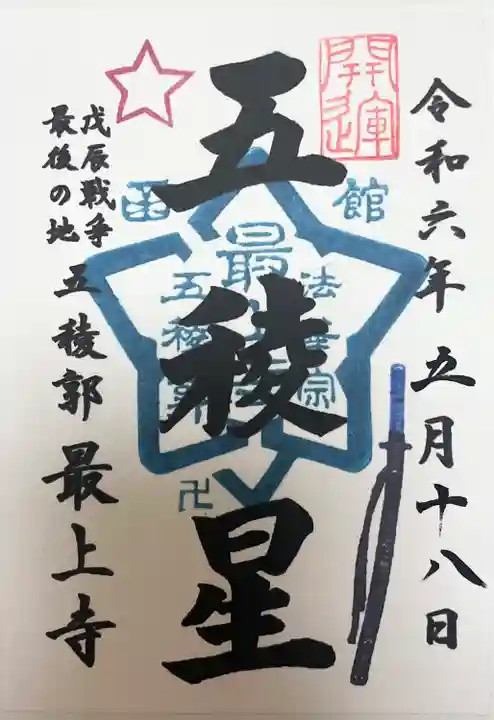 開運
令和六年五月十八日
五稜星
函館
法華宗
最上寺
五稜郭
卍
戊辰戦争
最後の地
五稜郭 最上寺